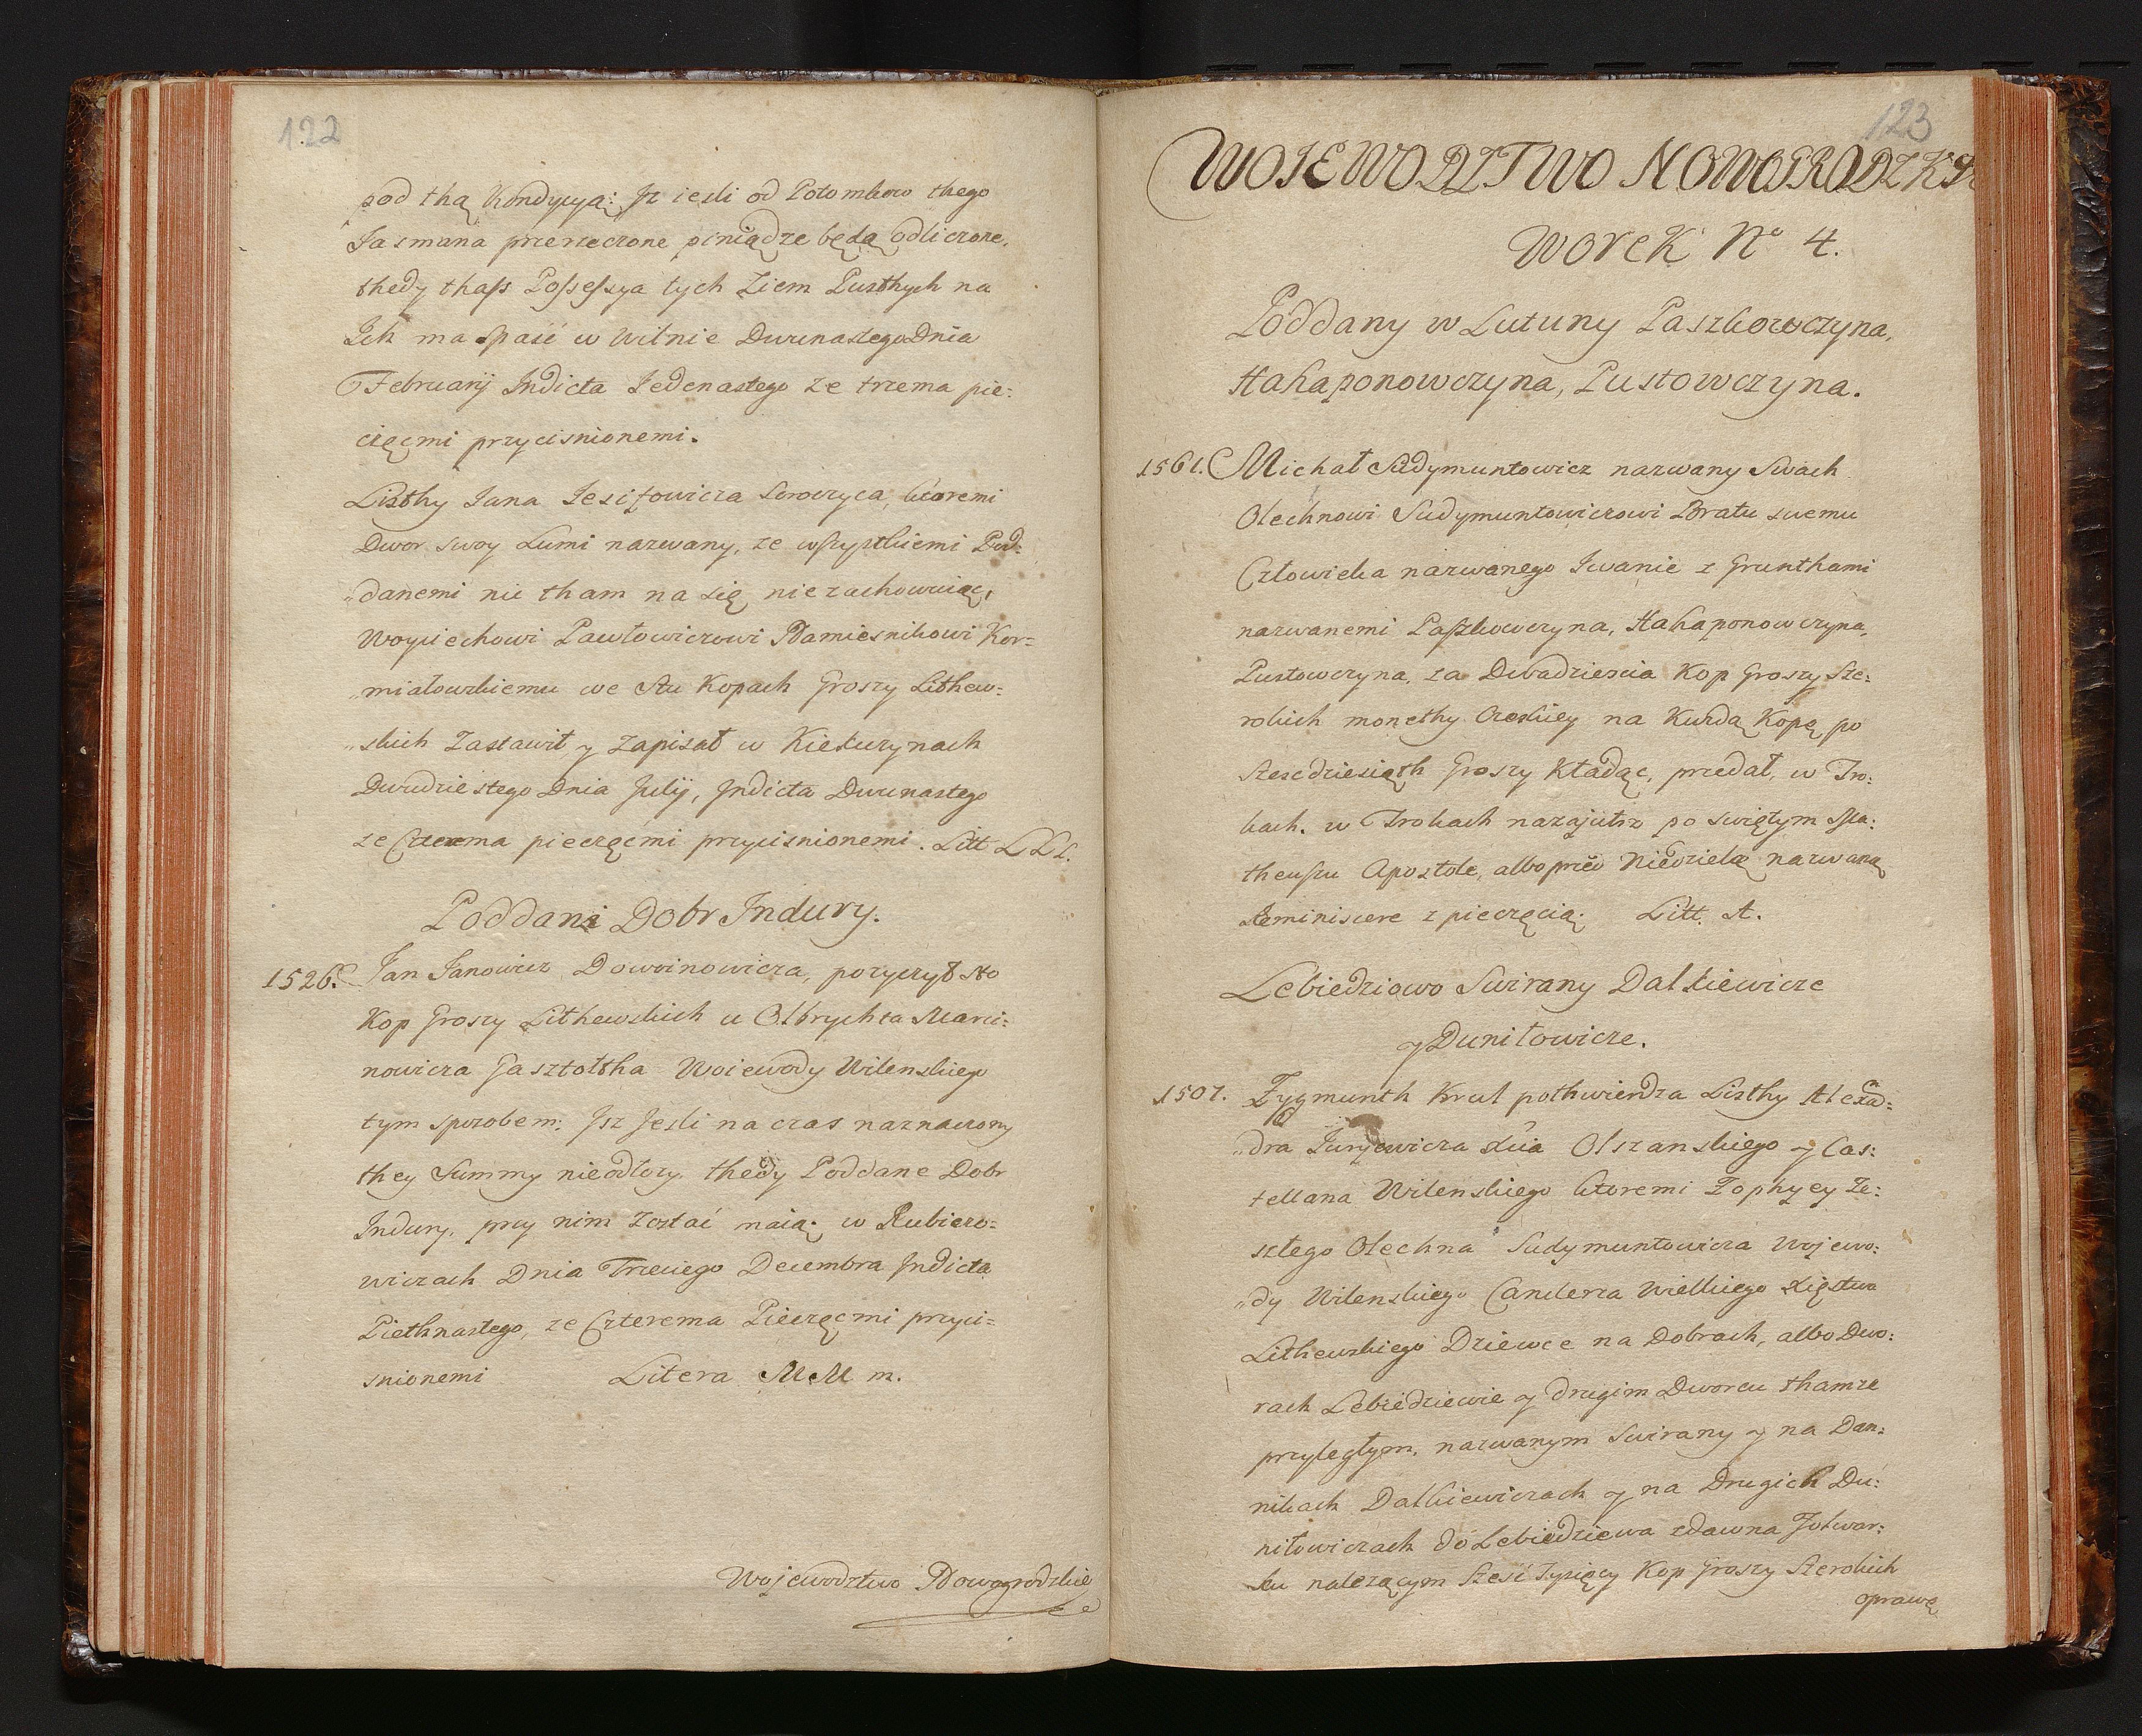 122
pod thą Kondycyą: Jz iesli od Potomkow thego
Jasmana przerzeczone piniądze będą odliczone,
thedy thaſs Poſseſsya tych Ziem Pusthych na
Ich ma spaść w Wilnie Dwunastego Dnia
February Indicta Iedenastego ze trzema pie:
częćmi przycisnionemi.
Listhy Jana Iesifowicza Sowczyca, ktoremi
Dwor swoy Lumi nazwany, ze wſzystkiemi Pod:
„danemi nic tham na się niezachowuiąc,
Woyciechowi Pawłowiczowi Namiesnikowi Kor=
„miałowskiemu we Stu Kopach Groszy Lithew=
„skich Zastawił y Zapisał w Kiekurynach
Dwudziestego Dnia Julij, Indicta Dwunastego
ze Czterema pieczęćmi przycisnionemi. Litt LLL.
Poddani Dobr Indury.
1526. Jan Janowicz Dowoinowicza, pozyczył Sto
Kop Groszy Lithewskich u Olbrychta Marci=
nowicza Gasztołtha Woiewody Wilenskiego
tym sposobem: Jsz Jesli na czas naznaczony
they Summy nieodłozy, thedy Poddane Dobr
Indury, przy nim Zostać maią. w Rubiezo=
wiczach Dnia Trzeciego Decembra Indicta
Piethnastego, ze Czterema Pieczęćmi przyci=
snionemi Litera MMm.
Wojewodztwo Nowogrodzkie
123
WOJEWODZTWO NOWOGRODZKIE
Worek No 4.
Poddany w Lutuny Paszkowczyna,
Hakaponowczyna, Pustowczyna.
1561. Michał Sudymuntowicz nazwany Swach
Olechnowi Sudymuntowiczowi Bratu swemu
Człowieka nazwanego Iwanie z Grunthami
nazwanemi Paſzkowczyna, Hakaponowczyna,
Pustowczyna, za Dwadziescia Kop Groszy Sze:
rokich monethy Czeskiey na Kuzdą Kopę po
Szescdziesiąth Groszy Kładąc, przedał, w Tro:
kach. w Trokach nazajutrz po swiętym Ma:
theuſzu Apostole, albo przed Niedzielą nazwaną
Reminiscere z pieczęcią. Litt. A.
Lebiedziowo Swirany Dalkiewicze
y Duniłowicze.
1507. Zygmunth Krul pothwierdza Listhy Alexa=
„dra Juryewicza Xcia Olszanskiego y Cas:
tellana Wilenskiego ktoremi Zophyey Ze:
szłego Olechna Sudymuntowicza Wojewo:
„dy Wilenskiego Canclerza Wielkiego Xięstwa
Lithewskiego Dziewce na Dobrach, albo Dwo:
rach Lebiedziewie y drugim Dworcu thamze
przyległym, nazwanym Swirany y na Dan:
nikach Dalkiewiczach y na Drugich Du:
niłowiczach do Lebiedziewa zdawna Folwar:
ku nalezącym Sześć Tysięcy Kop Groszy Szerokich
oprawę